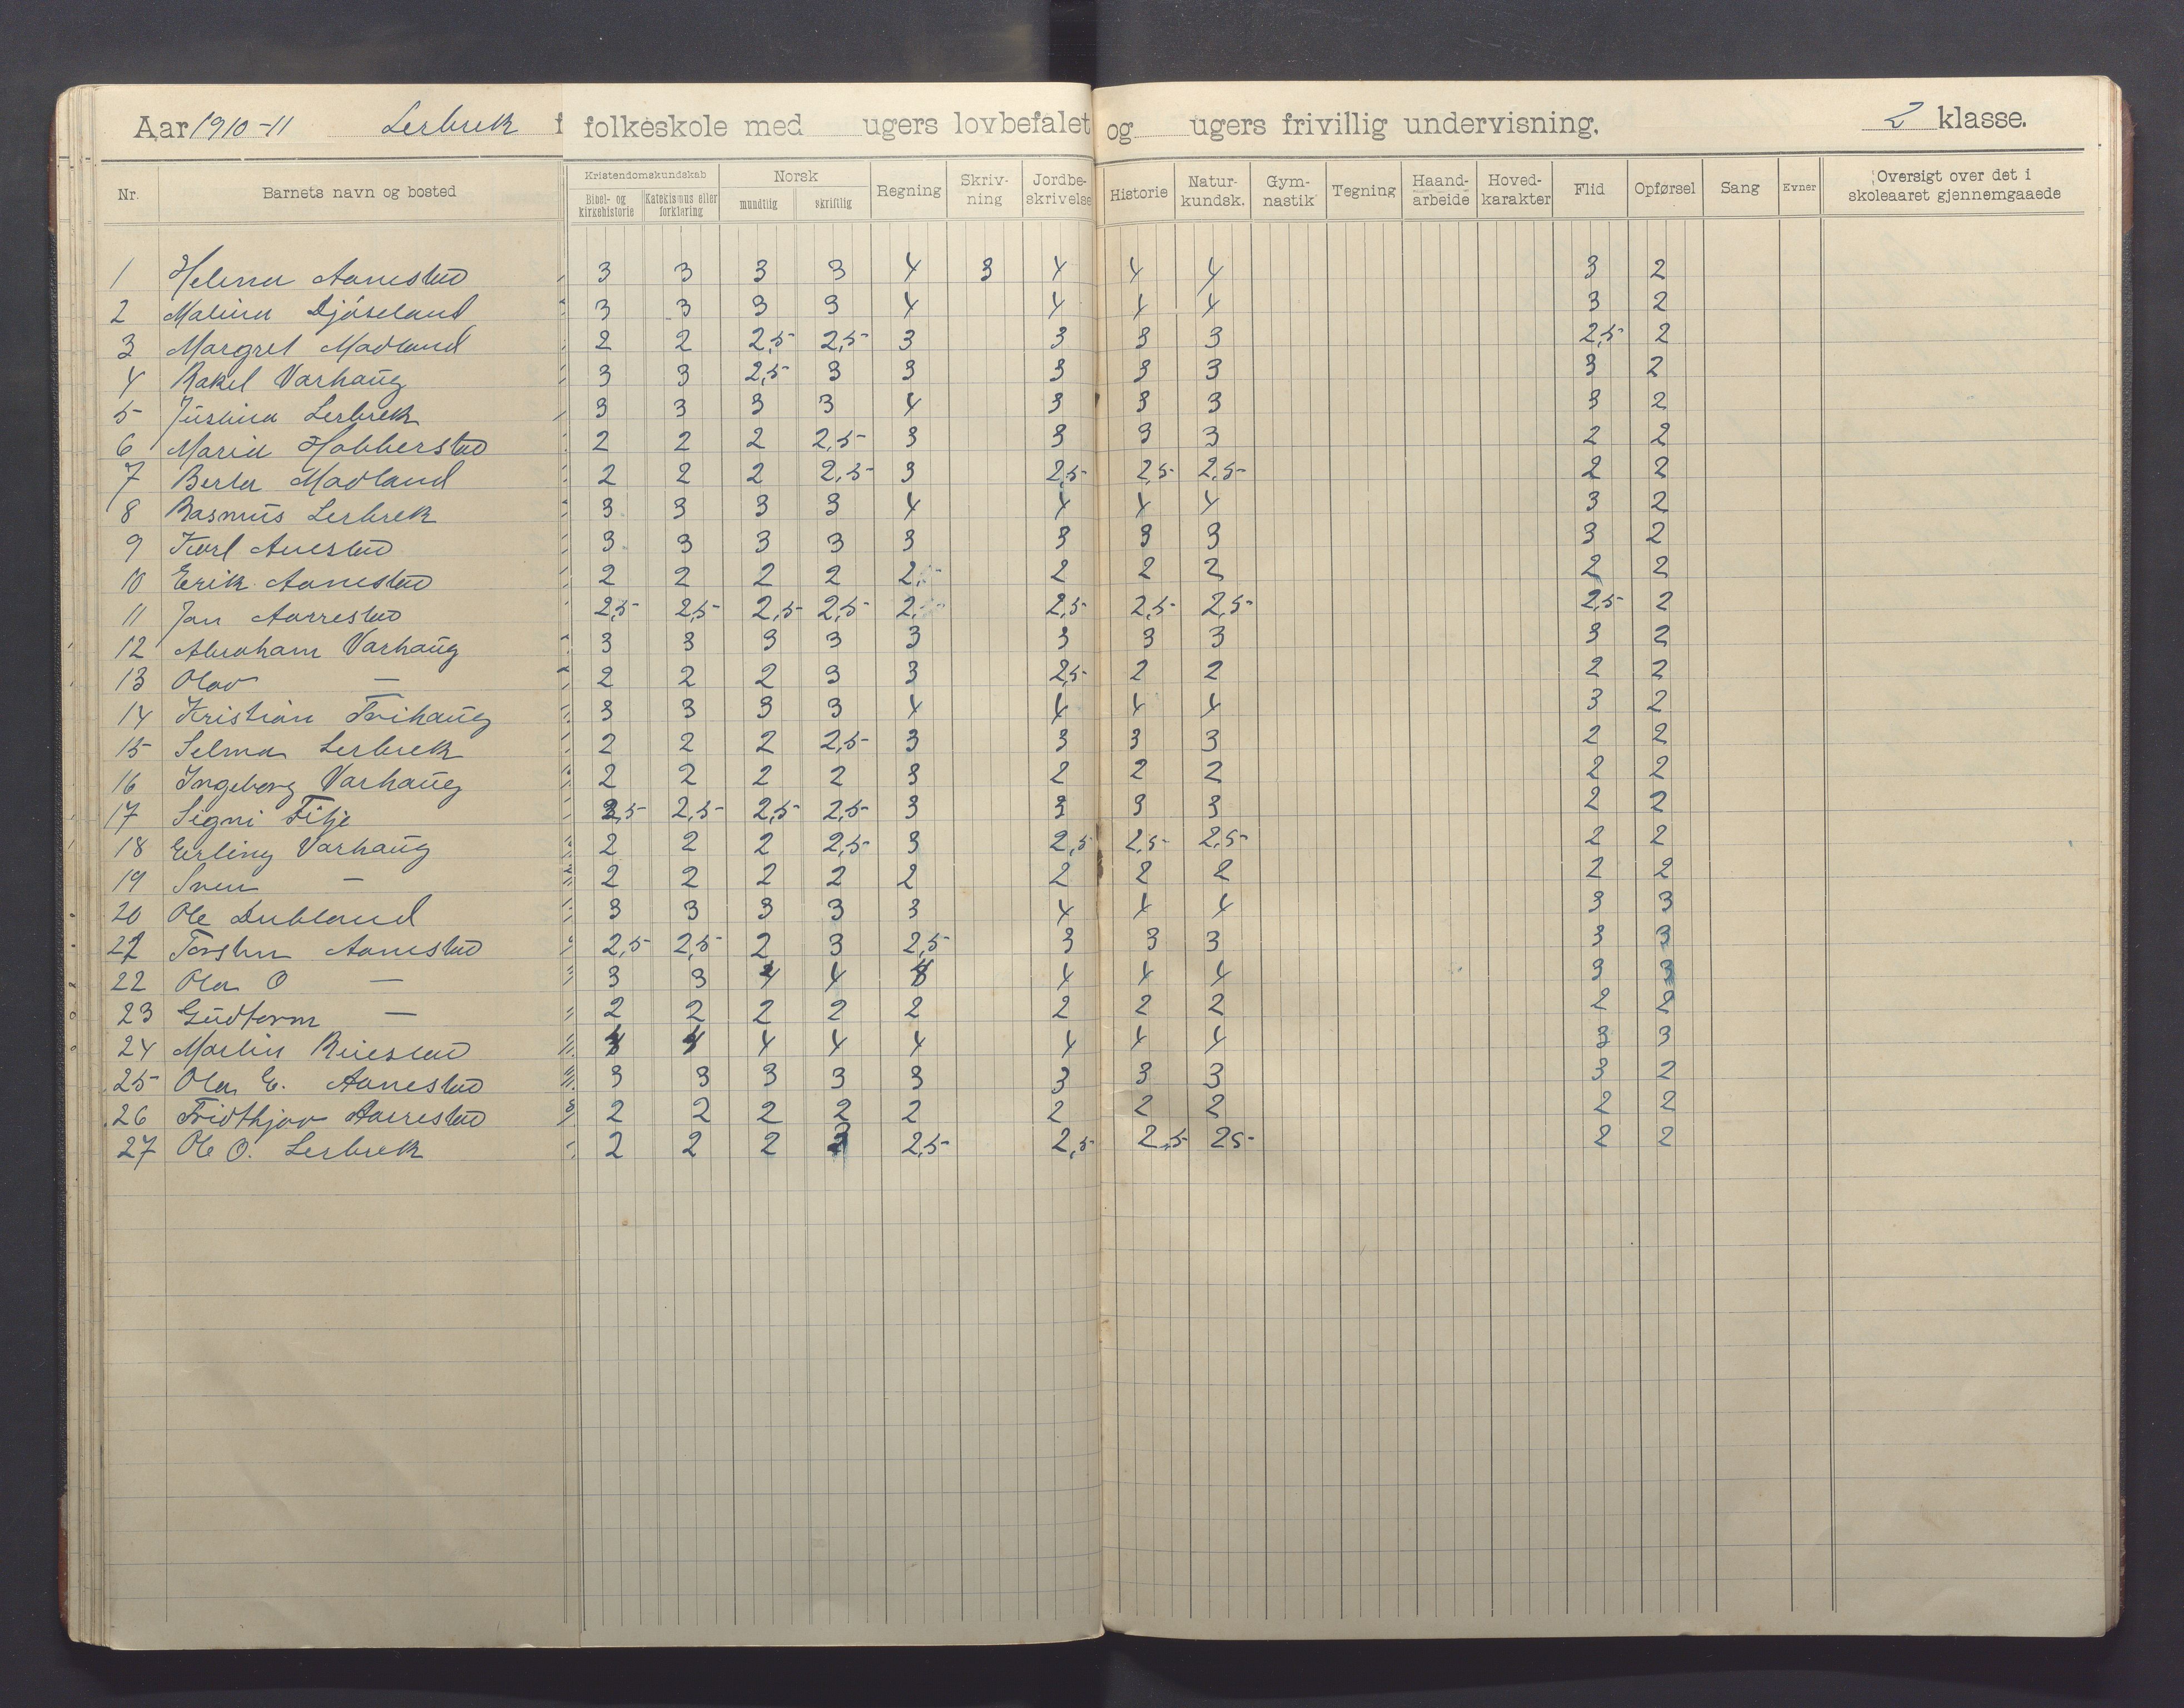 Aar 1910-11 Lerbrek folkeskole med ugers lovbefalet og ugers frivillig undervisning. 2 klasse.
Nr. Barnets navn og bosted Kristendomskundskab Bibel- og kirkehistorie Katekismus eller forklaring Norsk mundtlig skriftlig Regning Skriv-ning Jordbe-skrivelse Historie Natur-kundsk. Gym-nastik Tegning Haand-arbeide Hoved-karakter Flid Opførsel Sang Evner Oversigt over det i skoleaaret gjennemgaaede
1 Helena Aanestad 3 3 3 3 4 3 4 4 4 3 2
2 Malina Djöseland 3 3 3 3 4 4 4 4 3 2
3 Margret Madland 2 2 2,5 2,5 3 3 3 3 2,5 2
4 Rakel Varhaug 3 3 2,5 3 3 3 3 3 3 2
5 Justina Lerbrek 3 3 3 3 4 3 3 3 3 2
6 Maria Habberstad 2 2 2 2,5 3 3 3 3 2 2
7 Berta Madland 2 2 2 2,5 3 2,5 2,5 2,5 2 2
8 Rasmus Lerbrek 3 3 3 3 4 4 4 4 3 2
9 Karl Auestad 3 3 3 3 3 3 3 3 3 2
10 Erik Aanestad 2 2 2 2 2, 2 2 2 2 2
11 Jan Aarrestad 2,5 2,5 2,5 2,5 2, 2,5 2,5 2,5 2,5 2
12 Abraham Varhaug 3 3 3 3 3 3 3 3 3 2
13 Olav — 2 2 2 3 3 2,5 2 2 2 2
14 Kristian Tvihaug 3 3 3 3 4 4 4 4 3 2
15 Selma Lerbrek 2 2 2 2,5 3 3 3 3 2 2
16 Ingeborg Varhaug 2 2 2 2 3 2 2 2 2 2
17 Signi Filje 2,5 2,5 2,5 2,5 3 3 3 3 2 2
18 Erling Varhaug 2 2 2 2,5 3 2,5 2,5 2,5 2 2
19 Sven — 2 2 2 2 2 2 2 2 2 2
20 Ole Dubland 3 3 3 3 3 4 4 4 3 3
21 Torsten Aanestad 2,5 2,5 2 3 2,5 3 3 3 3 3
22 Ola O — 3 3 4 4 4 4 4 3 3
23 Gudtorm — 2 2 2 2 2 2 2 2 2 2
24 Martin Ruestad 4 4 4 4 4 4 4 4 3 3
25 Ola E. Aanestad 3 3 3 3 3 3 3 3 3 2
26 Fridthjov Aarrestad 2 2 2 2 2 2 2 2 2 2
27 Ole O. Lerbrek 2 2 2 2,5 2,5 2,5 25 2 2